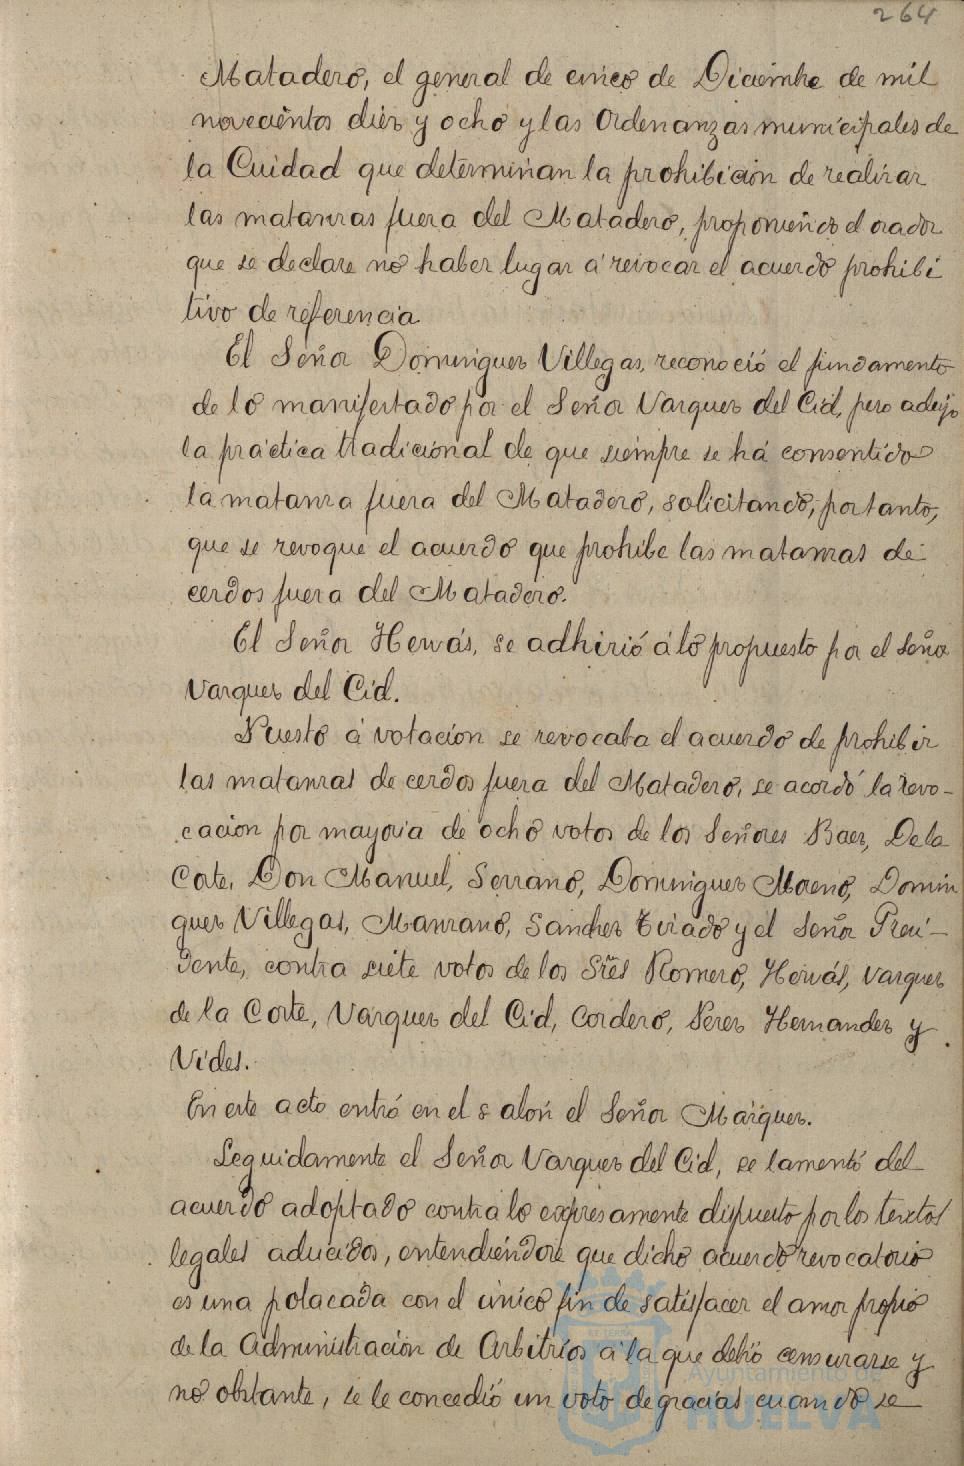 264
Matadero, el general de cinco de Diciembre de mil
novecientos diez y ocho y las Ordenanzas municipales de
la Ciudad que determinan la prohibición de realizar
las matanzas fuera del Matadero, proponiendo el orador
que se declare no haber lugar á revocar el acuerdo prohibi
tivo de referencia
El Señor Dominguez Villegas, reconoció el fundamento
de lo manifestado por el Señor Vazquez del Cid, pero adujo
la práctica tradicional de que siempre se há consentido
la matanza fuera del Matadero, solicitando, por tanto,
que se revoque el acuerdo que prohibe las matanzas de
cerdos fuera del Matadero.
El Señor Hervás, se adhirió á lo propuesto por el Señor
Vazquez del Cid.
Puesto á votación se revocaba el acuerdo de prohibir
las matanzas de cerdos fuera del Matadero, se acordó la revo-
cación por mayoria de ocho votos de los Señores Baez, De la
Corte, Don Manuel, Serrano, Dominguez Moreno, Domin
guez Villegas, Manzano, Sanchez Tirado y el Señor Presi-
dente, contra siete votos de los Sres Romero, Hervás, Vazquez
de la Corte, Vazquez del Cid, Cordero, Perez Hernandez y
Vides.
En este acto entró en el salón el Señor Márquez.
Seguidamente el Señor Vazquez del Cid, se lamentó del
acuerdo adoptado contra lo expresamente dispuesto por los textos
legales aducidos, entendiéndose que dicho acuerdo revocatorio
es una polacada con el único fin de satisfacer el amor propio
de la Administración de Arbitrios á la que debió censurarse y
no obstante, se le concedió un voto de gracias cuando se
Ayuntamiento de
HUELVA